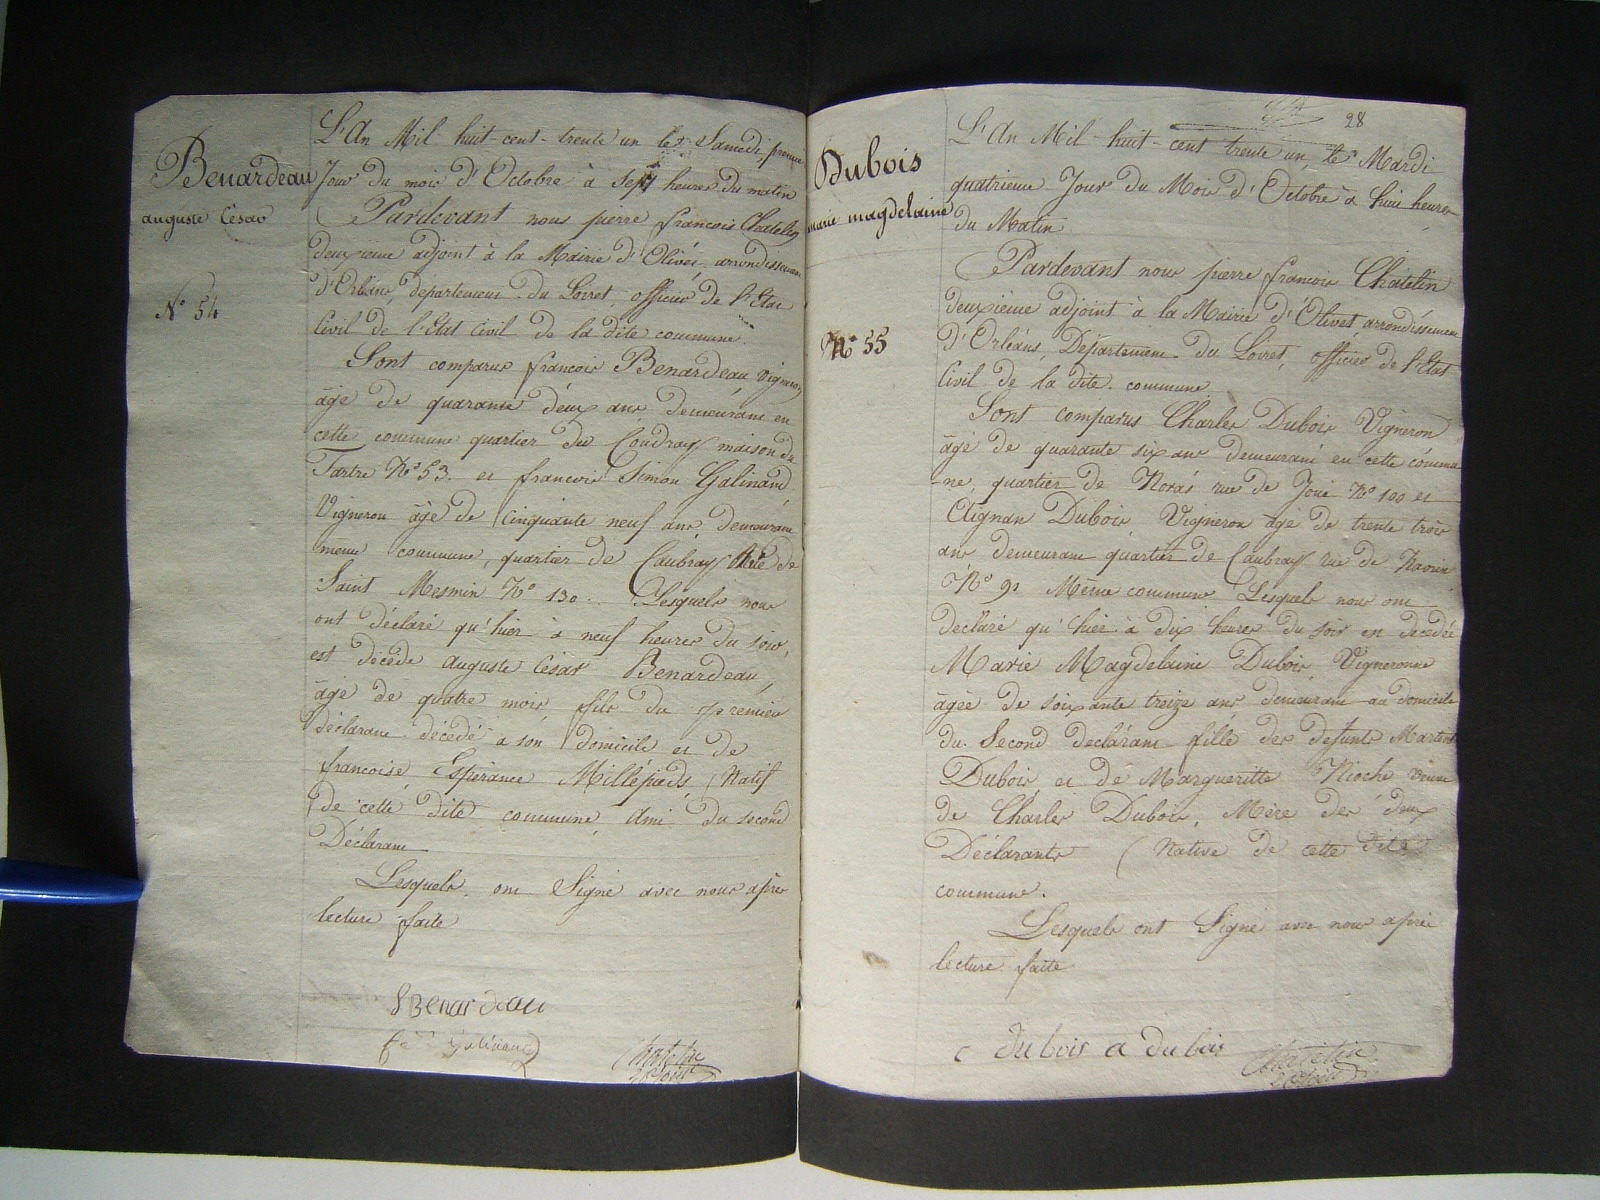 Benardeau
auguste César
N° 54
L'An Mil huit-cent-trente un le Samedi premier
Jour du mois d'Octobre à sept heures du matin
Pardevant nous pierre françois Chatelin
deuxième adjoint à la Mairie d'Olivet arrondissement
d'Orléans, département du Loiret, officier de l'Etat
Civil de l'Etat Civil de la dite commune.
Sont comparus françois Benardeau Vigneron
âgé de quarante deux ans demeurant en
cette commune quartier du Coudray maison du
Tartre N° 53. et françois Simon Galinand
Vigneron âgé de Cinquante neuf ans, demeurant
même commune, quartier de Caubray de
Saint Mesmin N° 130. Lesquels nous
ont déclaré qu'hier à neuf heures du soir,
est décédé auguste César Benardeau,
âgé de quatre mois fils du premier
déclarant décédé à son domicile et de
françoise Espérance Millépieds, (Natif
de cette dite commune Ami du second
Déclarant
Lesquels ont Signé avec nous après
lecture faite
Benardeau
Galinand
Chatelin
28
Dubois
marie magdelaine
N° 55
L'An Mil-huit-cent trente un, le Mardi
quatrieme Jour du Mois d'Octobre à huit heures
du Matin
Pardevant nous pierre françois Chatelin
deuxième adjoint à la Mairie d'Olivet arrondissement
d'Orléans, Département du Loiret, officier de l'Etat
Civil de la dite commune
Sont comparus Charles Dubois Vigneron
âgé de quarante six ans demeurant en cette commu
-ne, quartier de Noras rue de Joui N° 100 et
Aignan Dubois Vigneron âgé de trente trois
ans demeurant quartier de Caubray rue de
N° 91 Même commune Lesquels nous ont
déclaré qu'hier à dix heures du soir est décédée
Marie Magdelaine Dubois Vigneronne
âgée de soixante treize ans demeurant au domicile
du Second déclarant fille des defunts Martin
Dubois et de Margueritte Rioche veuve
de Charles Dubois, Mère des deux
Déclarants (Native de cette dite
commune.
Lesquels ont Signé avec nous après
lecture faite
c dubois a dubois Chatelin